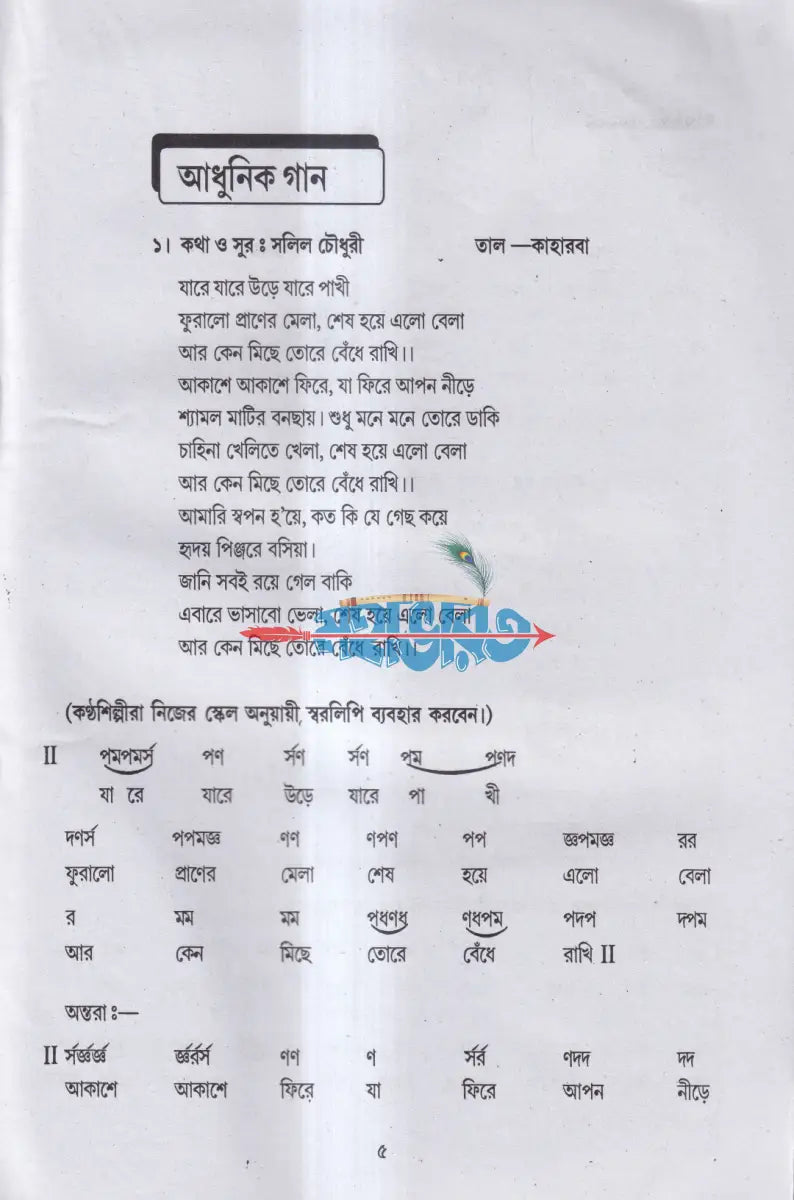 আধুনিক গান
১। কথা ও সুর ঃ সলিল চৌধুরী তাল —কাহারবা
যারে যারে উড়ে যারে পাখী
ফুরালো প্রাণের মেলা, শেষ হয়ে এলো বেলা
আর কেন মিছে তোরে বেঁধে রাখি।।
আকাশে আকাশে ফিরে, যা ফিরে আপন নীড়ে
শ্যামল মাটির বনছায়। শুধু মনে মনে তোরে ডাকি
চাহিনা খেলিতে খেলা, শেষ হয়ে এলো বেলা
আর কেন মিছে তোরে বেঁধে রাখি।।
আমারি স্বপন হ'য়ে, কত কি যে গেছ কয়ে
হৃদয় পিঞ্জরে বসিয়া।
জানি সবই রয়ে গেল বাকি
এবারে ভাসাবো ভেলা, শেষ হয়ে এলো বেলা
আর কেন মিছে তোরে বেঁধে রাখি।।
মহাভারত
(কণ্ঠশিল্পীরা নিজের স্কেল অনুযায়ী, স্বরলিপি ব্যবহার করবেন।)
II পমপমর্স পণ র্সণ র্সণ পম পণদ
যা রে যারে উড়ে যারে পা খী
দণর্স পপমজ্ঞ ণণ ণপণ পপ জ্ঞপমজ্ঞ রর
ফুরালো প্রাণের মেলা শেষ হয়ে এলো বেলা
র মম মম পধণধ ণধপম পদপ দপম
আর কেন মিছে তোরে বেঁধে রাখি II
অন্তরা ঃ—
II র্সর্জ্ঞর্জ্ঞ র্জ্ঞর্রর্স ণণ ণ র্সর্র ণদদ দদ
আকাশে আকাশে ফিরে যা ফিরে আপন নীড়ে
৫